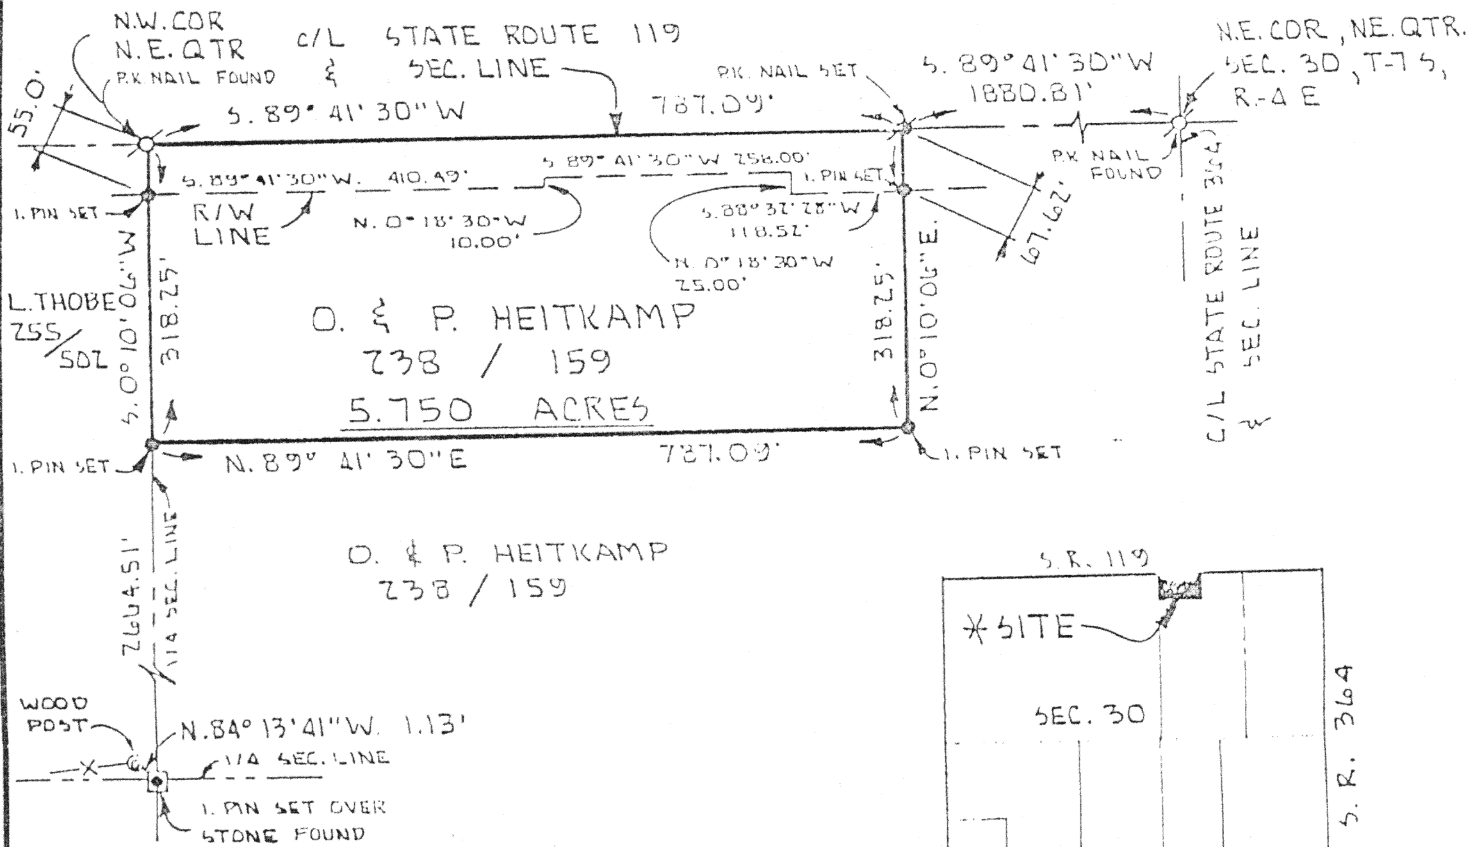 N.W. COR
N.E. QTR
P.K NAIL FOUND
C/L STATE ROUTE 119
& SEC. LINE
P.K. NAIL SET
S. 89° 41' 30" W
1880.81'
N.E. COR, NE. QTR.
SEC. 30, T-7 S,
R-4 E
55.0'
S. 89° 41' 30" W
787.09'
P.K NAIL
FOUND
S. 89° 41' 30" W. 410.49'
S 89° 41' 30" W 258.00'
I. PIN SET
I. PIN SET
R/W
LINE
N. 0° 18' 30" W
10.00'
S. 88° 32' 28" W
118.52'
N. 0° 18' 30" W
25.00'
67.62'
C/L STATE ROUTE 364
& SEC. LINE
L. THOBE
255/502
S. 0° 10' 06" W
318.25'
O. & P. HEITKAMP
238 / 159
5.750 ACRES
318.25'
N. 0° 10' 06" E.
I. PIN SET
N. 89° 41' 30" E
787.09'
I. PIN SET
2664.51'
1/4 SEC. LINE
O. & P. HEITKAMP
238 / 159
WOOD
POST
N. 84° 13' 41" W. 1.13'
1/4 SEC. LINE
I. PIN SET OVER
STONE FOUND
S. R. 119
* SITE
SEC. 30
S. R. 364